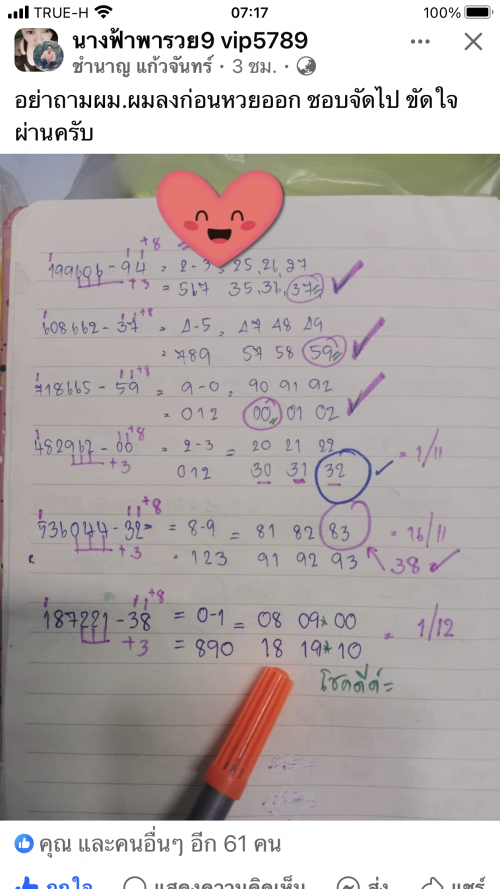 TRUE-H 07:17 100%
นางฟ้าพารวย9 vip5789
ชำนาญ แก้วจันทร์ · 3 ชม. ·
อย่าถามผม.ผมลงก่อนหวยออก ชอบจัดไป ขัดใจ
ผ่านครับ
+8
199606 - 94 = 2-3 = 25, 26, 27
+3 = 567 35, 36, 37
+8
608662 - 37 = 4-5 = 47 48 49
= 789 57 58 59
+8
718665 - 59 = 9-0 = 90 91 92
= 012 00 01 02
+8
482962 - 00 = 2-3 = 20 21 22 = 1/11
+3 012 30 31 32
+8
536044 - 32 = 8-9 = 81 82 83 = 16/11
+3 = 123 91 92 93 38
+8
187221 - 38 = 0-1 = 08 09* 00 = 1/12
+3 = 890 18 19* 10
โชคดีค่ะ
คุณ และคนอื่นๆ อีก 61 คน
ถูกใจ แสดงความคิดเห็น ส่ง แชร์